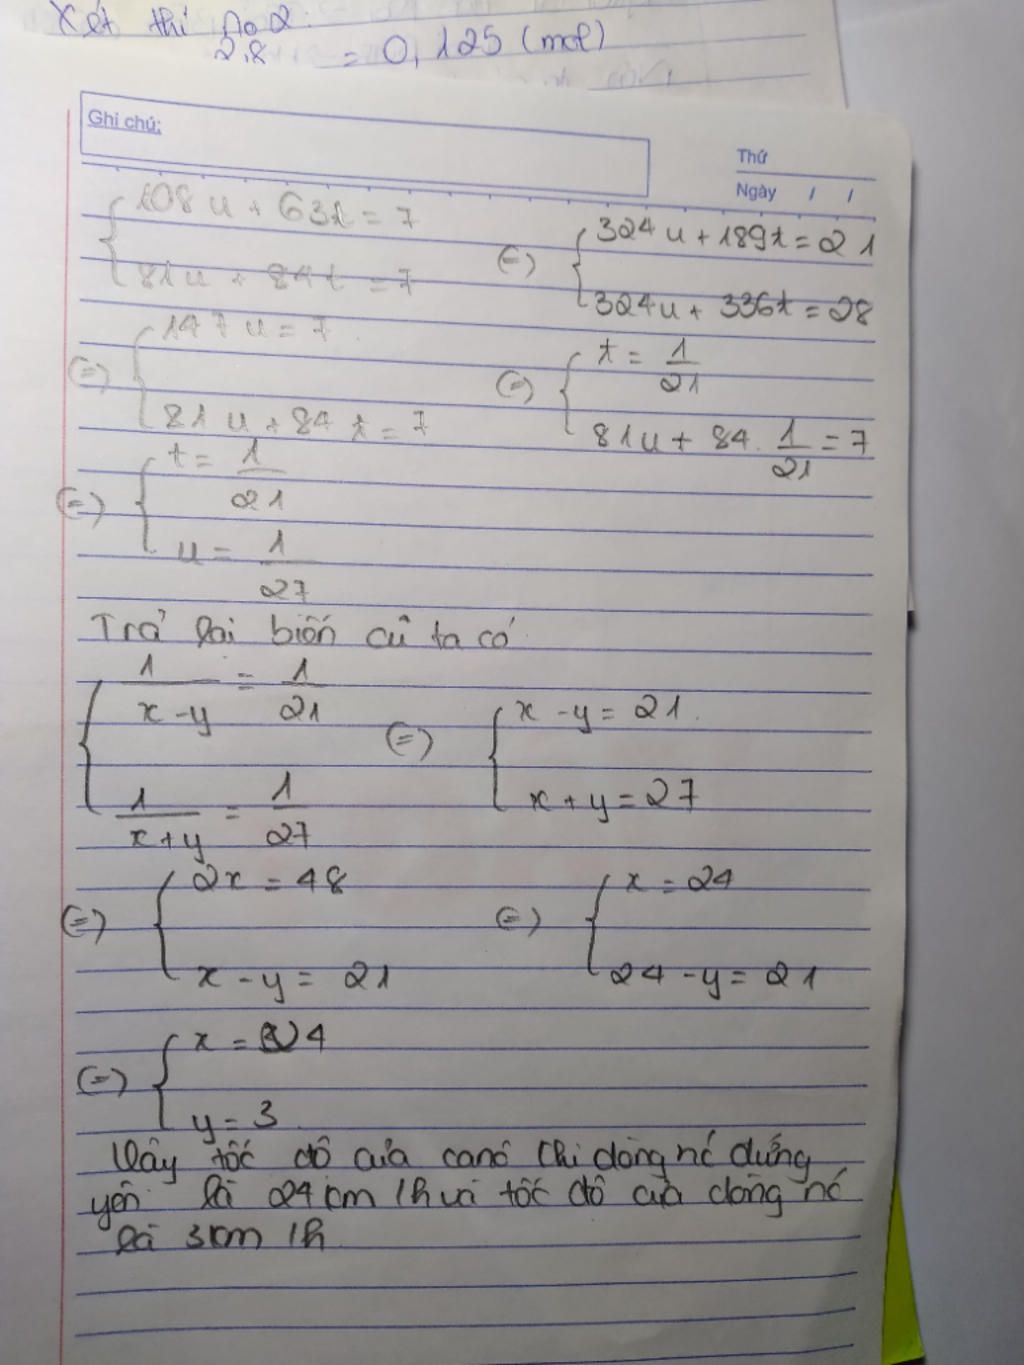 Xét thí no 2:
2,8 = 0,125 (mol)
Ghi chú:
Thứ
Ngày / /
{ 108u + 63t = 7
81u + 84t = 7
(=) { 324u + 189t = 21
324u + 336t = 28
(=) { 147u = 7
81u + 84t = 7
(=) { t = 1/21
81u + 84. 1/21 = 7
(=) { t = 1/21
u = 1/27
Trả lại biến cũ ta có
{ 1/(x-y) = 1/21
1/(x+y) = 1/27
(=) { x - y = 21.
x + y = 27
(=) { 2x = 48
x - y = 21
(=) { x = 24
24 - y = 21
(=) { x = 24
y = 3
Vậy tốc độ của canô khi dòng nc đứng
yên là 24km/h và tốc độ của dòng nc
là 3km/h